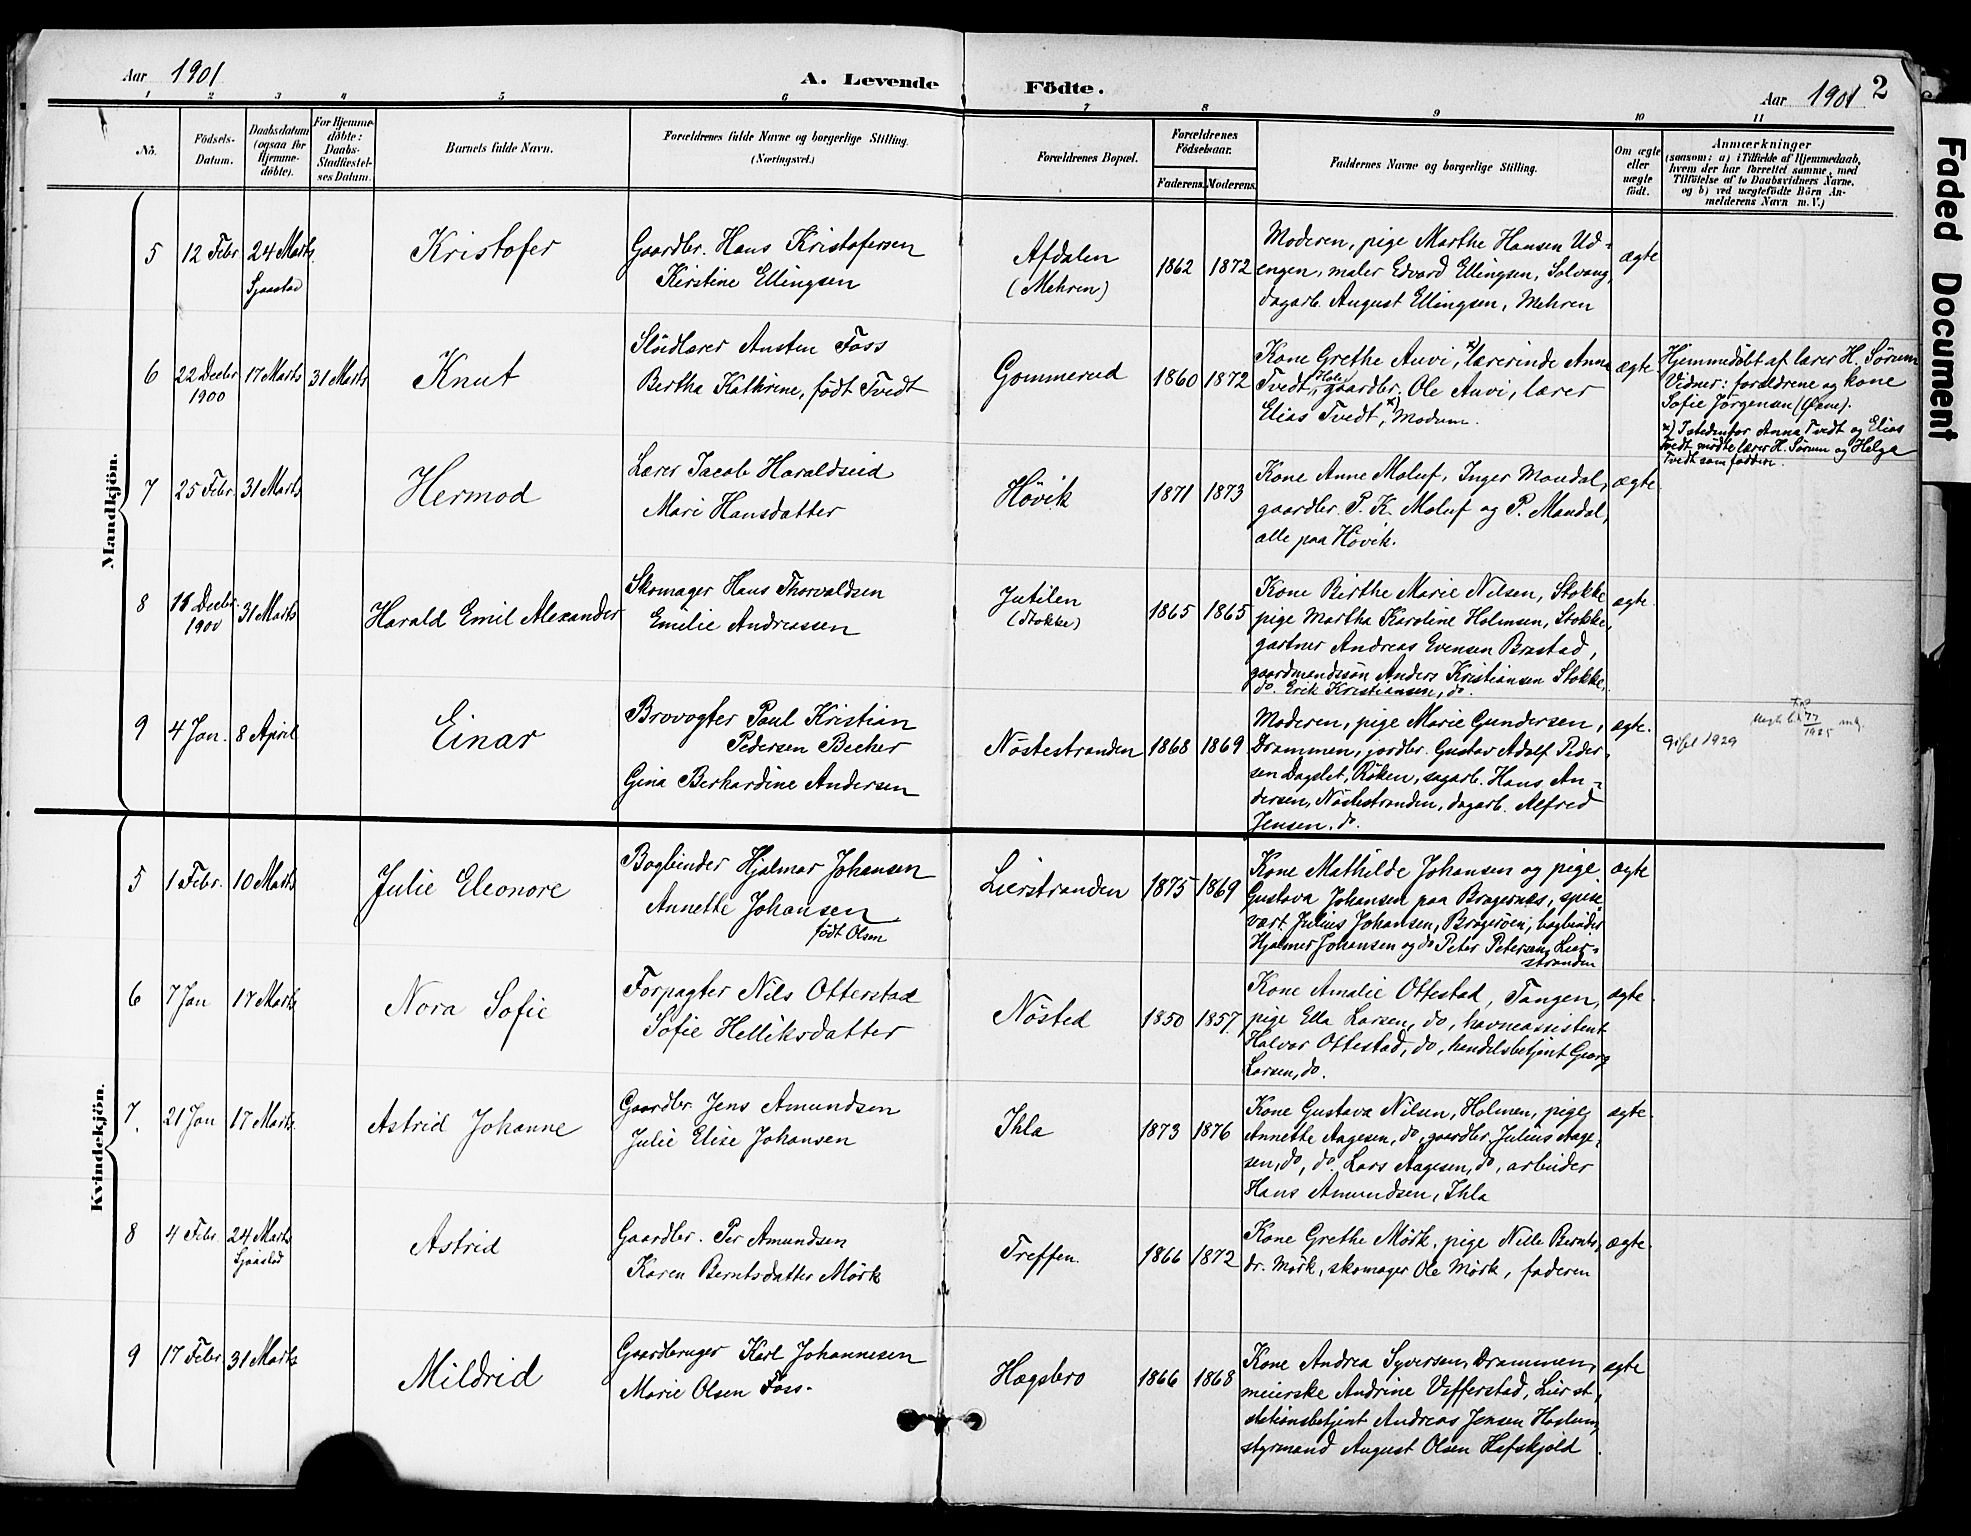 Aar 1901
A. Levende Födte.
Aar 1901
2
1 2 3 4 5 6 7 8 9 10 11
Nö.
Födsels-
Datum.
Daabsdatum
(ogsaa for
Hjemme-
døbte).
For Hjemme-
døbte:
Daabs-
Stadfæstel-
ses Datum.
Barnets fulde Navn.
Forældrenes fulde Navne og borgerlige Stilling.
(Næringsvei.)
Forældrenes Bopæl.
Forældrenes
Födselsaar.
Faderens. Moderens.
Faddernes Navne og borgerlige Stilling.
Om ægte
eller
uægte
født.
Anmærkninger
(saasom: a) i Tilfælde af Hjemmedaab,
hvem der har forrettet samme, med
Tilføielse af to Daabsvidners Navne,
og b) ved uægtefødte Børn An-
melderens Navn m. V.)
Mandkjön.
5
12 Febr
24 Marts
Sjaastad
Kristofer
Gaardbr. Hans Kristofersen
Kirstine Ellingsen
Afdalen
(Mehren)
1862
1872
Moderen, pige Marthe Hansen Ud-
engen, maler Edvard Ellingsen, Solvang,
dagarb. August Ellingsen, Mehren
ægte
6
22 Decbr
1900
17 Marts
31 Marts
Knut
Slöidlærer Austen Foss
Bertha Kathrine, født Tvedt
Gommerud
1860
1872
Kone Grethe Auvi, *) lærerinde Anna
Tvedt, Hole, gaardbr. Ole Auvi, lærer
Elias Tvedt, *) Modum.
ægte
Hjemmedöbt af lærer H. Sörum
Vidner: forældrene og kone
Sofie Jörgensen
*) Istedenfor Anna Tvedt og Elias
Tvedt mødte lærer H. Sörum og Helga
Tvedt som faddere.
7
25 Febr.
31 Marts
Hermod
Lærer Jacob Haraldseid
Mari Hansdatter
Hövik
1871
1873
Kone Anne Moluf, Inger Mandal,
gaardbr. P. K. Moluf og P. Mandal,
alle paa Hövik.
ægte
8
Decbr.
1900
31 Marts
Harald Emil Alexander
Skomager Hans Thorvaldsen
Emilie Andreassen
Jutilen
(Stokke)
1865
1865
Kone Birthe Marie Nilsen, Stokke
pige Martha Karoline Holmsen, Stokke,
gartner Andreas Evensen Brastad,
gaardmandssøn Anders Kristiansen Stokke,
do. Erik Kristiansen, do.
ægte
9
4 Jan.
8 April
Einar
Brovogter Paul Kristian
Pedersen Becker
Gina Berhardine Andersen
Nöstestranden
1868
1869
Moderen, pige Marie Gundersen,
Drammen, jordbr. Gustav Adolf Peder-
sen Dagslet, Röken, sagarb. Hans An-
dersen, Nöstestranden, dagarb. Alfred
Jensen, do.
ægte
1929
Kvindekjön.
5
1 Febr.
10 Marts
Julie Eleonore
Bogbinder Hjalmar Johansen
Annette Johansen
født Olsen
Lierstranden
1875
1869
Kone Mathilde Johansen og pige
Gustava Johansen paa Bragernæs, spise-
vært Julius Johansen, Brageröen, bogbinder
Hjalmar Johansen og do Peter Petersen, Lier-
stranden
ægte
6
7 Jan
17 Marts
Nora Sofie
Forpagter Nils Otterstad
Sofie Helliksdatter
Nösted
1850
1857
Kone Amalie Ottestad, Tangen,
pige Ella Larsen, do, havneassistent
Halvor Ottestad, do, handelsbetjent Georg
Larsen, do.
ægte
7.
21 Jan
17 Marts
Astrid Johanne
Gaardbr. Jens Amundsen
Julie Elise Johansen
Ihla
1873
1876
Kone Gustava Nilsen, Holmen, pige
Annette Aagesen, do, gaardbr. Julius Aage-
sen, do, do. Lars Aagesen, do, arbeider
Hans Amundsen, Ihla
ægte
8
4 Febr.
24 Marts
Sjaastad
Astrid
Gaardbr. Per Amundsen
Karen Berntsdatter Mörk
Treffen
1866
1872
Kone Grethe Mörk, pige Nille Bernts-
dr. Mörk, skomager Ole Mörk, faderen
ægte
9
17 Febr
31 Marts
Mildrid
Gaardbruger Karl Johannesen
Marie Olsen Foss
Hægsbro
1866
1868
Kone Andrea Syversen, Drammen,
meierske Andrine Vefferstad, Lier st,
stationsbetjent Andreas Jensen Haslum,
styrmand August Olsen Hafskjold
ægte
Faded Document